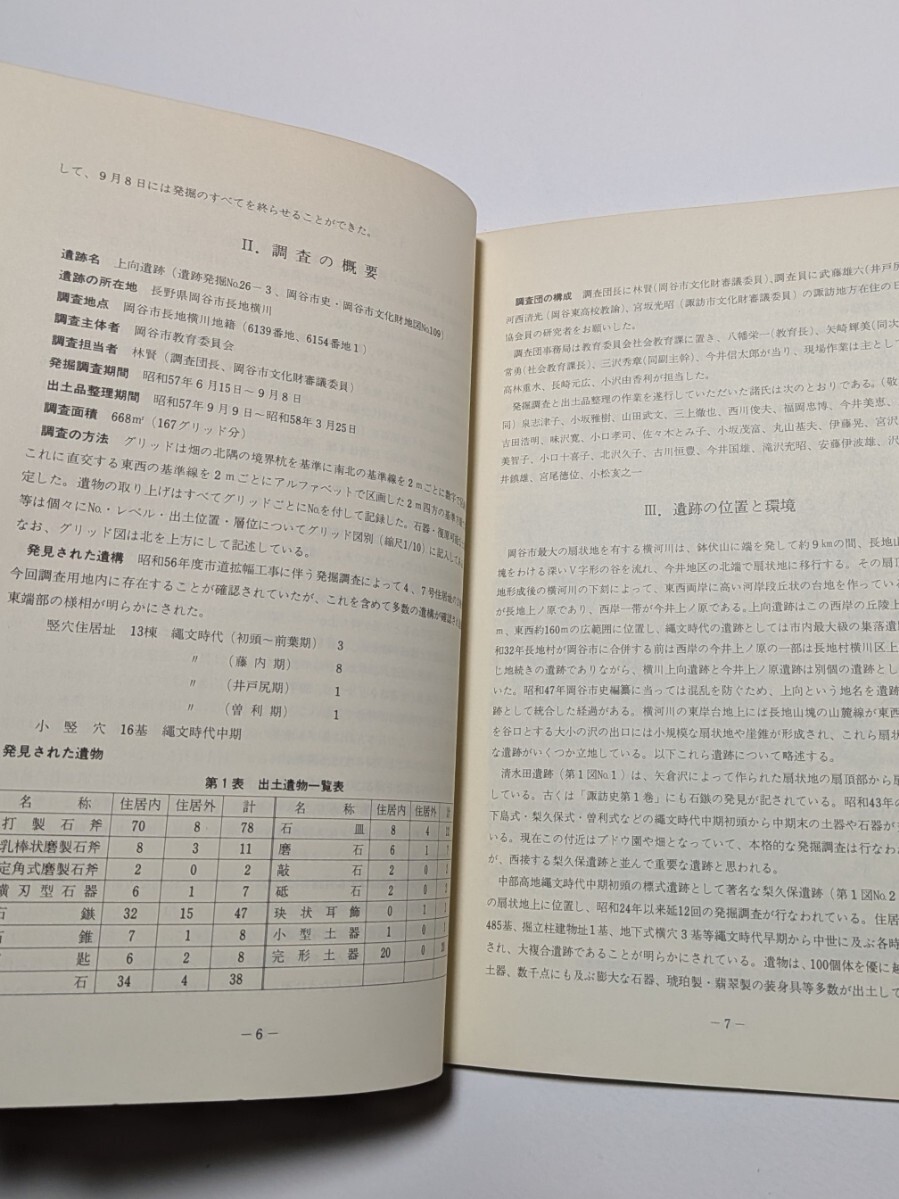 して、9月8日には発掘のすべてを終らせることができた。
II. 調査の概要
遺跡名 上向遺跡(遺跡発掘No.26-3、岡谷市史・岡谷市文化財地図No.109)
遺跡の所在地 長野県岡谷市長地横川
調査地点 岡谷市長地横川地籍(6139番地、6154番地1)
調査主体者 岡谷市教育委員会
調査担当者 林賢(調査団長、岡谷市文化財審議委員)
発掘調査期間 昭和57年6月15日~9月8日
出土品整理期間 昭和57年9月9日~昭和58年3月25日
調査面積 668㎡(167グリッド分)
調査の方法 グリッドは畑の北隅の境界杭を基準に南北の基準線を2mごとに数字で
これに直交する東西の基準線を2mごとにアルファベットで区画した2m四方の基準
定した。遺物の取り上げはすべてグリッドごとにNo.を付して記録した。石器・復原可能
等は個々にNo.・レベル・出土位置・層位についてグリッド図別(縮尺1/10)に記入し
なお、グリッド図は北を上方にして記述している。
発見された遺構 昭和56年度市道拡幅工事に伴う発掘調査によって4、7号住居址
今回調査用地内に存在することが確認されていたが、これを含めて多数の遺構が確認
東端部の様相が明らかにされた。
竪穴住居址 13棟 縄文時代(初頭~前葉期) 3
〃 (藤内期) 8
〃 (井戸尻期) 1
〃 (曽利期) 1
小竪穴 16基 縄文時代中期
発見された遺物
第1表 出土遺物一覧表
名称 住居内 住居外 計 名称 住居内 住居外 計
打製石斧 70 8 78 石皿 8 4 12
乳棒状磨製石斧 8 3 11 磨石 6 1
定角式磨製石斧 2 0 2 敲石 2 0
横刃型石器 6 1 7 砥石 2 0
石鏃 32 15 47 玦状耳飾 0 1
石錐 7 1 8 小型土器 1 0
匙 6 2 8 完形土器 20 0
石 34 4 38
―6―
調査団の構成 調査団長に林賢(岡谷市文化財審議委員)、調査員に武藤雄六(井戸尻
河西清光(岡谷東高校教諭)、宮坂光昭(諏訪市文化財審議委員)の諏訪地方在住の日
協会員の研究者をお願いした。
調査団事務局は教育委員会社会教育課に置き、八幡栄一(教育長)、矢崎輝美(同次
常勇(社会教育課長)、三沢秀章(同副主幹)、今井信太郎が当り、現場作業は主とし
高林重水、長崎元広、小沢由香利が担当した。
発掘調査と出土品整理の作業を遂行していただいた諸氏は次のとおりである。(敬
同)泉志津子、小坂雅樹、山田武文、三上徹也、西川俊夫、福岡忠博、今井美恵、
吉田浩明、味沢寛、小口孝司、佐々木とみ子、小坂茂富、丸山基夫、伊藤晃、宮沢
美智子、小口十喜子、北沢久子、古川恒豊、今井国雄、滝沢充昭、安藤伊波雄、
井鎮雄、宮尾徳位、小松亥之一
III. 遺跡の位置と環境
岡谷市最大の扇状地を有する横河川は、鉢伏山に端を発して約9kmの間、長地山
塊をわける深いV字形の谷を流れ、今井地区の北端で扇状地に移行する。その扇
地形成後の横河川の下刻によって、東西両岸に高い河岸段丘状の台地を作ってい
が長地上ノ原であり、西岸一帯が今井上ノ原である。上向遺跡はこの西岸の丘陵上
m、東西約160mの広範囲に位置し、縄文時代の遺跡としては市内最大級の集落遺
和32年長地村が岡谷市に合併する前は西岸の今井上ノ原の一部は長地村横川区上
じ地続きの遺跡でありながら、横川上向遺跡と今井上ノ原遺跡は別個の遺跡とし
いた。昭和47年岡谷市史編纂に当っては混乱を防ぐため、上向という地名を遺跡
跡として統合した経過がある。横河川の東岸台地上には長地山塊の山麓線が東西
を谷口とする大小の沢の出口には小規模な扇状地や崖錐が形成され、これら扇状
な遺跡がいくつか立地している。以下これら遺跡について略述する。
清水田遺跡(第1図No.1)は、矢倉沢によって作られた扇状地の扇頂部から扇
している。古くは「諏訪史第1巻」にも石鏃の発見が記されている。昭和43年の
下島式・梨久保式・曽利式などの縄文時代中期初頭から中期末の土器や石器が
いる。現在この付近はブドウ園や畑となっていて、本格的な発掘調査は行なわ
が、西接する梨久保遺跡と並んで重要な遺跡と思われる。
中部高地縄文時代中期初頭の標式遺跡として著名な梨久保遺跡(第1図No.2
の扇状地上に位置し、昭和24年以来延12回の発掘調査が行なわれている。住居
485基、掘立柱建物址1基、地下式横穴3基等縄文時代早期から中世に及ぶ各時
され、大複合遺跡であることが明らかにされている。遺物は、100個体を優に越
土器、数千点にも及ぶ膨大な石器、琥珀製・翡翠製の装身具等多数が出土して
―7―